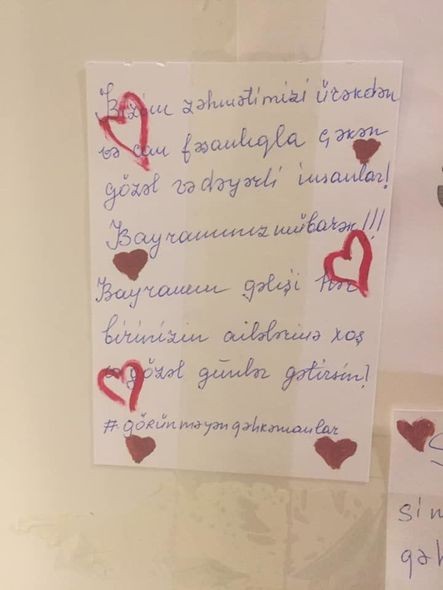 Bizim zəhmətimizi ürəkdən
və can fəsanlıqla çəkən
gözəl və dəyərli insanlar!
Bayramınız mübarək!!!
Bayramın gəlişi hər
birinizin ailələrinə xoş
və gözəl günlər gətirsin!
#görünməyənqəhrəmanlar
sin
qəh